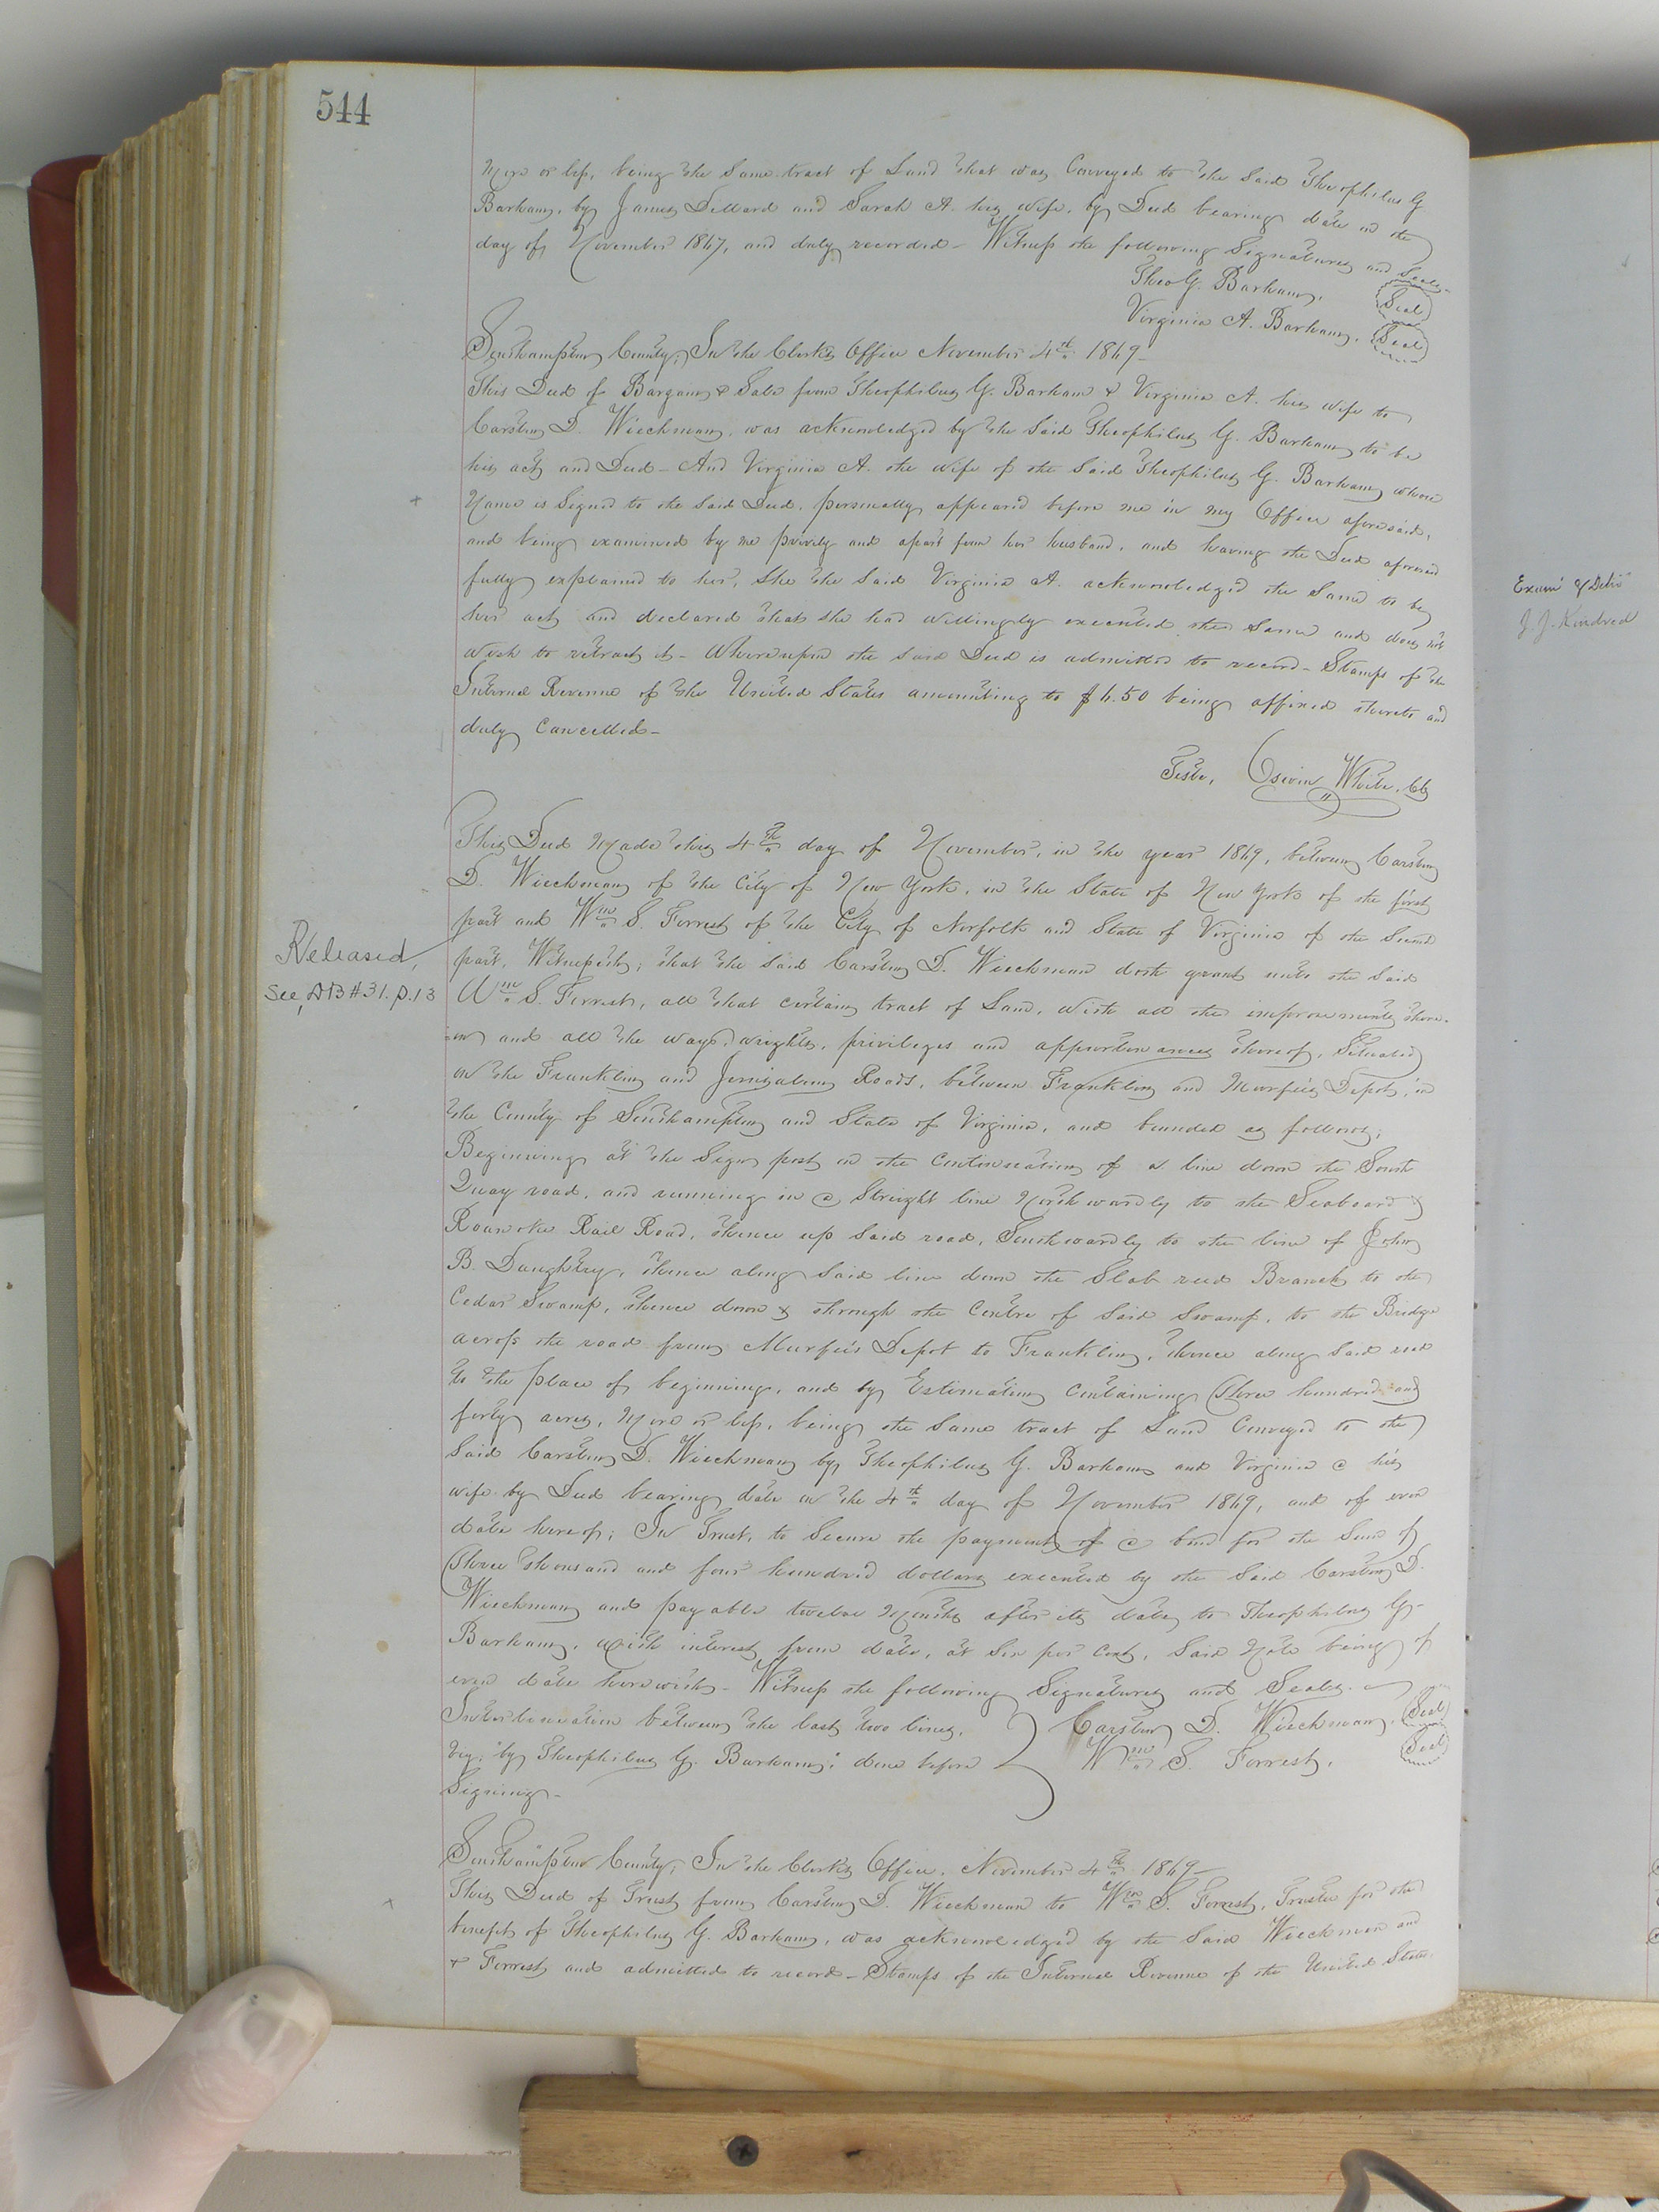 544
more or less, being the same tract of Land that was Conveyed to the said Theophilus G
Barham, by James Dillard and Sarah A. his wife, by Deed bearing date on the
day of November 1867, and duly recorded - Witness the following Signatures and Seals -
Theo G. Barham, Seal
Virginia A. Barham, Seal
Southampton County; In the Clerk's Office November 4th 1869 -
This Deed of Bargain & Sale from Theophilus G. Barham & Virginia A. his wife to
Carsten D. Wieckmann, was acknowledged by the said Theophilus G. Barham to be
his act and Deed - And Virginia A. the wife of the said Theophilus G. Barham whose
Name is Signed to the said Deed, personally appeared before me in my Office aforesaid,
and being examined by me privily and apart from her husband, and having the Deed aforesaid
fully explained to her, She the said Virginia A. acknowledged the Same to be
her act, and declared that she had willingly executed the Same and does not
wish to retract it - Whereupon the said Deed is admitted to record - Stamps of the
Internal Revenue of the United States amounting to being affixed thereto and
duly Cancelled -
Teste, White, Clk
This Deed Made this 4th day of November, in the year 1869, between Carsten
D. Wieckmann of the City of New York, in the State of New York of the first
part and Wm S. Forrest of the City of Norfolk and State of Virginia of the Second
part, Witnesseth; that the said Carsten D. Wieckmann doth grant unto the said
Wm S. Forrest, all that certain tract of Land, with all the improvements there-
-on and all the ways, rights, privileges and appurtenances thereof, Situated
on the Franklin and Jerusalem Roads, between Franklin and Murfee's Depot, in
the County of Southampton and State of Virginia, and bounded as follows;
Beginning at the Sign post on the Continuation of a line down the South
Quay road, and running in a Streight line Northwardly to the Seaboard &
Roanoke Rail Road, thence up said road, Southwardly to the line of John
B. Daughtry, thence along said line down the Branch to the
Cedar Swamp, thence down & through the Centre of said Swamp, to the Bridge
across the road from Murfee's Depot to Franklin, thence along said road
to the place of beginning, and by Estimation Containing Three hundred and
forty acres, More or less, being the same tract of Land Conveyed to the
said Carsten D. Wieckmann by Theophilus G. Barham and Virginia a his
wife by Deed bearing date on the 4th day of November 1869, and of even
date hereof; In Trust, to Secure the payment of a bond for the Sum of
Three thousand and four hundred dollars executed by the said Carsten D.
Wieckmann and payable twelve Months after its date, to Theophilus G.
Barham, with interest from date, at Six per Cent, said Note being of
even date herewith - Witness the following Signatures and Seals.
Interlineation between the last two lines,
Viz; "by Theophilus G. Barham," done before
Signing -
Carsten D. Wieckmann, Seal
Wm S. Forrest, Seal
Southampton County; In the Clerk's Office, November 4th 1869 -
This Deed of Trust from Carsten D. Wieckmann to Wm S. Forrest, Trustee for the
benefit of Theophilus G. Barham, was acknowledged by the said Wieckman and
& Forrest and admitted to record - Stamps of the Internal Revenue of the United States
Released,
See, DB #31. p.13
J. J. Kindred